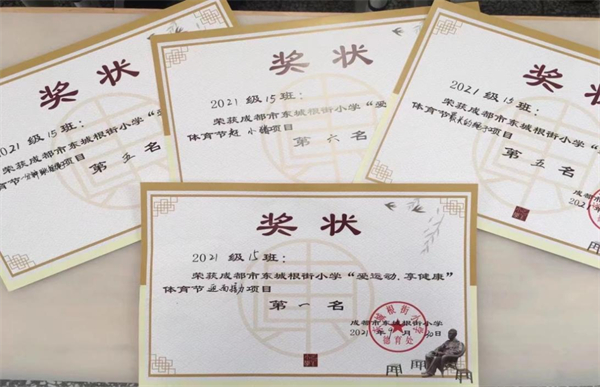 奖状
2021级15班：
荣获成都市东城根街小学“爱
体育节一分钟跳绳项目
第五名
奖状
2021级15班：
荣获成都市东城根街小学“爱
体育节赶小猪项目
第六名
奖状
2021级15班：
荣获成都市东城根街小学“爱
体育节最长的绳子项目
第五名
成都市东
2021年
奖状
2021级15班：
荣获成都市东城根街小学“爱运动、享健康”
体育节迎面接力项目
第一名
成都市东城根街小学
2021年 月30日
东城根街小学
德育处